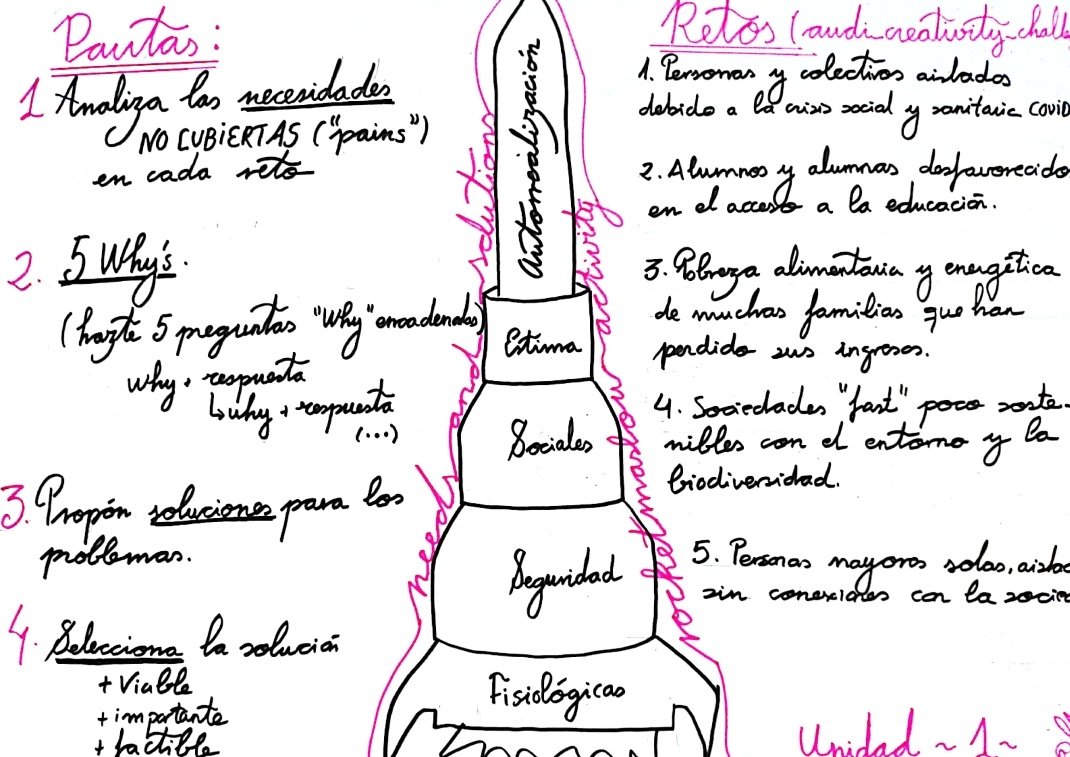 Pautas:
1 Analiza las necesidades
NO CUBIERTAS ("pains")
en cada reto
2. 5 Why's.
(hazte 5 preguntas "Why" encadenadas)
why + respuesta
↳ why + respuesta
(...)
3. Propón soluciones para los
problemas.
4. Selecciona la solución
+ Viable
+ importante
+ factible
needs and solutions
rocket maslow activity
Autorrealización
Estima
Sociales
Seguridad
Fisiológicas
Retos (audi_creativity_chall
1. Personas y colectivos aislados
debido a la crisis social y sanitaria COVID
2. Alumnos y alumnas desfavorecido
en el acceso a la educación.
3. Pobreza alimentaria y energética
de muchas familias que han
perdido sus ingresos.
4. Sociedades "fast" poco soste-
nibles con el entorno y la
biodiversidad.
5. Personas mayores solas, aislad
sin conexiones con la socie
Unidad ~ 1 ~